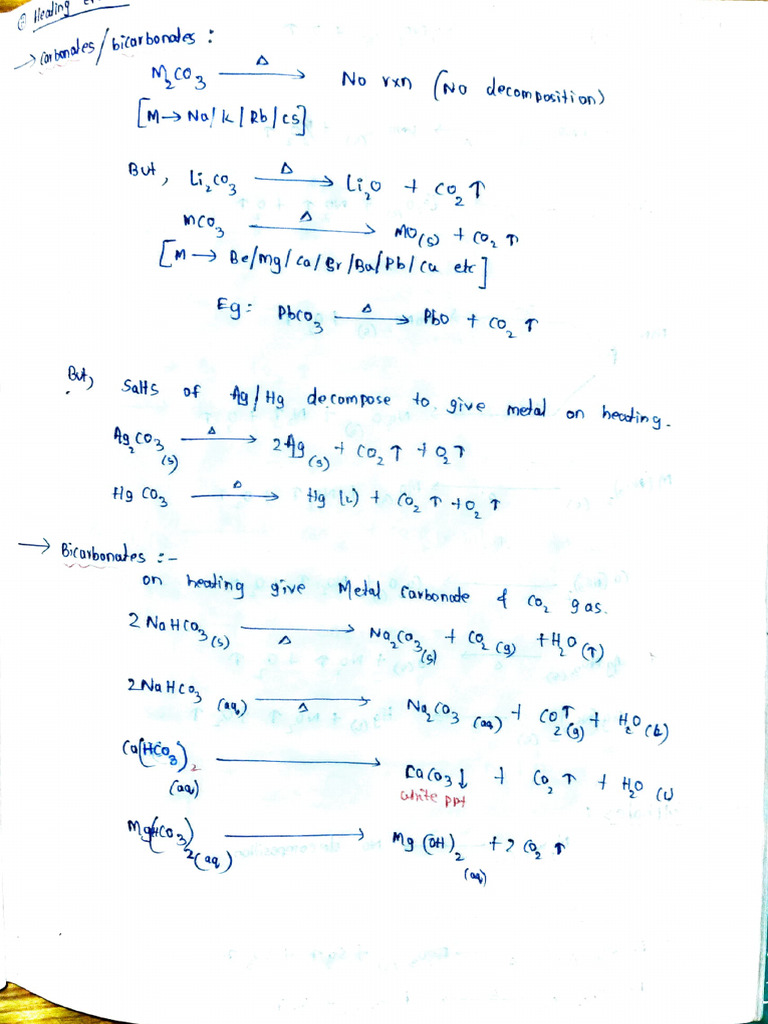 ① Heating
→ carbonates/bicarbonates :
M₂CO₃ —Δ→ No rxn (No decomposition)
[M → Na/K/Rb/Cs]
But, Li₂CO₃ —Δ→ Li₂O + CO₂ ↑
MCO₃ —Δ→ MO(s) + CO₂ ↑
[M → Be/Mg/Ca/Sr/Ba/Pb/Cu etc]
Eg: PbCO₃ —Δ→ PbO + CO₂ ↑
But, Salts of Ag/Hg decompose to give metal on heating.
Ag₂CO₃(s) —Δ→ 2Ag(s) + CO₂ ↑ + O₂ ↑
HgCO₃ —Δ→ Hg(l) + CO₂ ↑ + O₂ ↑
→ Bicarbonates :-
on heating give Metal carbonate & CO₂ gas.
2NaHCO₃(s) —Δ→ Na₂CO₃(s) + CO₂(g) + H₂O(↑)
2NaHCO₃(aq) —Δ→ Na₂CO₃(aq) + CO₂↑(g) + H₂O(l)
Ca(HCO₃)₂(aq) → CaCO₃↓ + CO₂ ↑ + H₂O(l)
white ppt
Mg(HCO₃)₂(aq) → Mg(OH)₂(aq) + 2CO₂ ↑